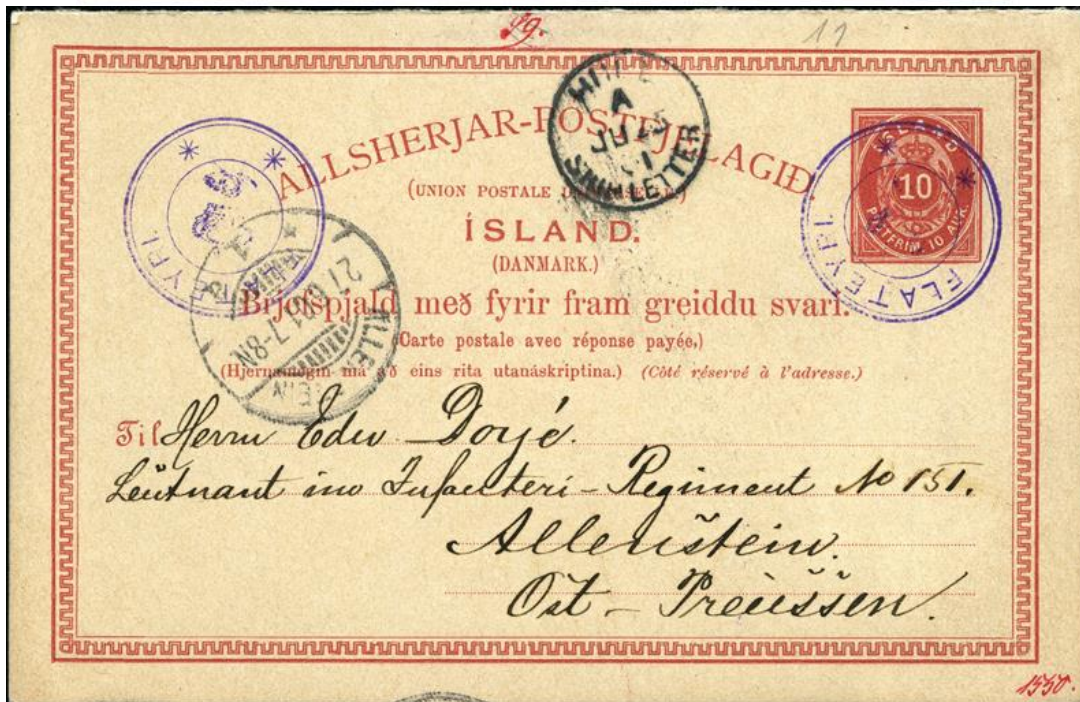 99.
11
ALLSHERJAR-PÓSTFJELAGIÐ.
(UNION POSTALE UNIVERSELLE.)
ÍSLAND.
(DANMARK.)
Brjefspjald með fyrir fram greiddu svari.
(Carte postale avec réponse payée.)
(Hjernamegin má að eins rita utanáskriptina.) (Côté réservé à l'adresse.)
ÍSLAND
10
PÓSTFRIM. 10 AUR.
FLATEYRI.
YRI.
HULL
A
JU 25
SHIP LETTER
ALLENSTEIN
27/6 01 7-8N
Til Herrn Edw. Dorjé.
Leutnant im Infanteri-Regiment No 151.
Allenstein.
Ost-Preussen.
1550.